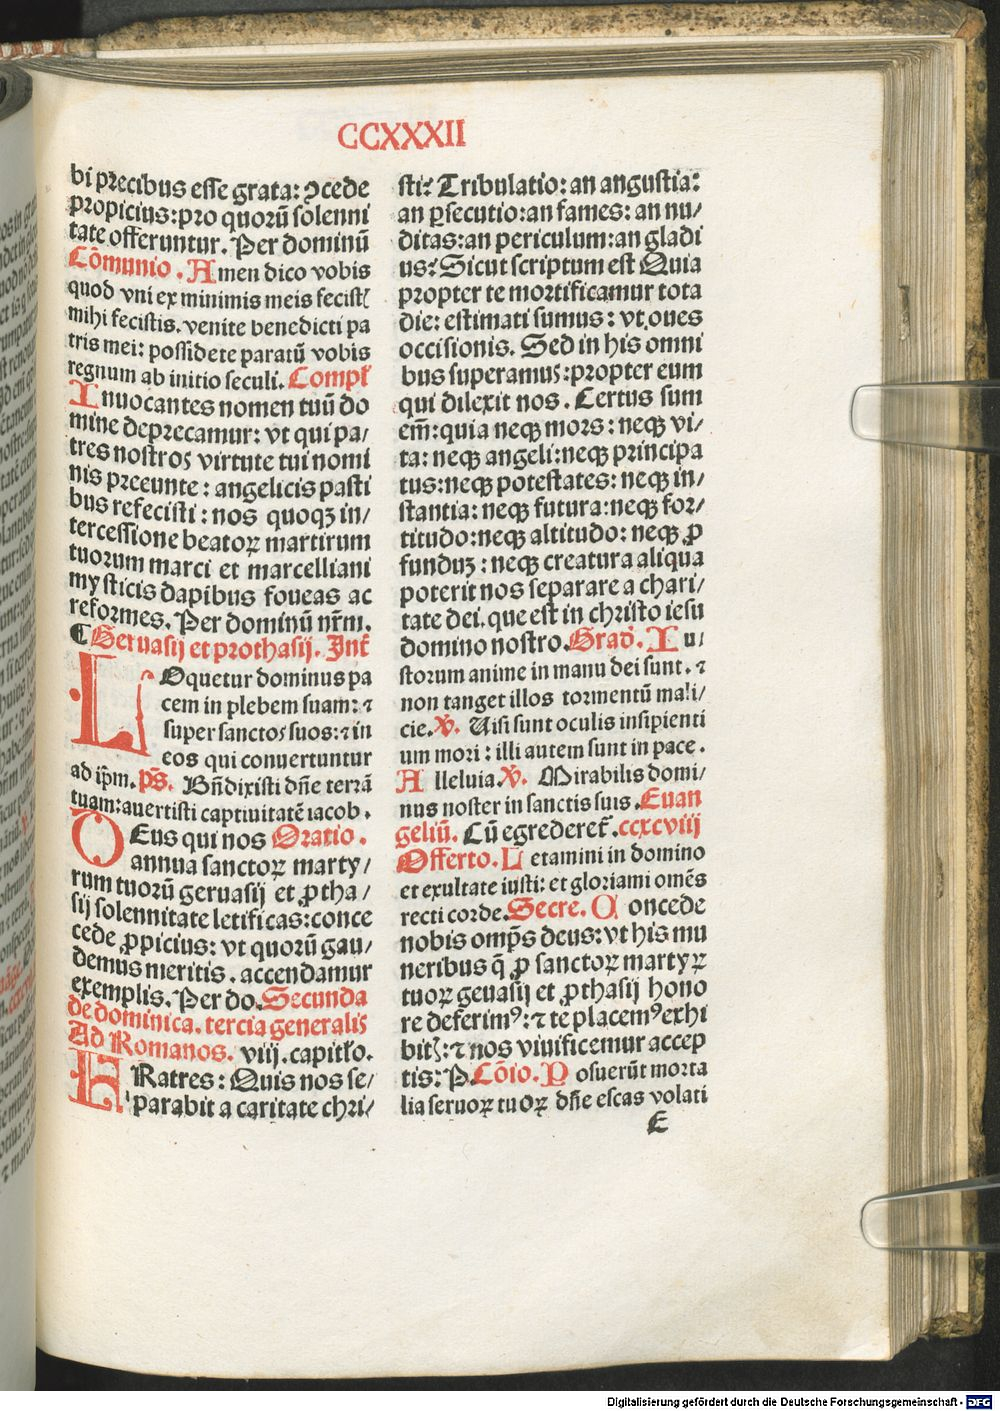 CCXXXII
bi precibus esse grata: ꝯcede
propicius: pro quorū solenni
tate offeruntur. Per dominū
Cōmunio. Amen dico vobis
quod vni ex minimis meis fecistꝭ
mihi fecistis. venite benedicti pa
tris mei: possidete paratū vobis
regnum ab initio seculi. Compł
Inuocantes nomen tuū do
mine deprecamur: vt qui pa/
tres nostros virtute tui nomi
nis preeunte: angelicis pasti
bus refecisti: nos quoqꝫ in/
tercessione beatoꝝ martirum
tuorum marci et marcelliani
mysticis dapibus foueas ac
reformes. Per dominū nr̄m.
¶ Geruasij et prothasij. Int̄
LOquetur dominus pa
cem in plebem suam: ⁊
super sanctos suos: ⁊ in
eos qui conuertuntur
ad ip̄m. ps̄. Bn̄dixisti dn̄e terrā
tuam: auertisti captiuitatē iacob.
DEus qui nos Oratio.
annua sanctoꝝ marty/
rum tuorū geruasij et ꝓtha/
sij solennitate letificas: conce
cede ꝓpicius: vt quorū gau/
demus meritis. accendamur
exemplis. Per do. Secunda
de dominica. tercia generalis
Ad Romanos. viij. capitło.
FRatres: Quis nos se/
parabit a caritate chri/
sti? Tribulatio: an angustia:
an ꝑsecutio: an fames: an nu/
ditas: an periculum: an gladi
us? Sicut scriptum est Quia
propter te mortificamur tota
die: estimati sumus: vt oues
occisionis. Sed in his omni
bus superamus: propter eum
qui dilexit nos. Certus sum
em̄: quia neqꝫ mors: neqꝫ vi/
ta: neqꝫ angeli: neqꝫ principa
tus: neqꝫ potestates: neqꝫ in/
stantia: neqꝫ futura: neqꝫ for/
titudo: neqꝫ altitudo: neqꝫ ꝓ
funduꝫ: neqꝫ creatura aliqua
poterit nos separare a chari/
tate dei. que est in christo iesu
domino nostro. Grad̄. Iu/
storum anime in manu dei sunt. ⁊
non tanget illos tormentū mali/
cie. ℣. Uisi sunt oculis insipienti
um mori: illi autem sunt in pace.
Alleluia. ℣. Mirabilis domi/
nus noster in sanctis suis. Euan
geliū. Cū egrederet̄. ccxcviij
Offerto. Letamini in domino
et exultate iusti: et gloriami omēs
recti corde. Secre. Concede
nobis omp̄s deus: vt his mu
neribus q̄ ꝓ sanctoꝝ martyꝝ
tuoꝝ geuasij et ꝓthasij hono
re deferimꝰ: ⁊ te placemꝰ exhi
bitꝭ: ⁊ nos viuificemur accep
tis: P. Cōio. Posuerūt morta
lia seruoꝝ tuoꝝ dn̄e escas volati
E
Digitalisierung gefördert durch die Deutsche Forschungsgemeinschaft - DFG